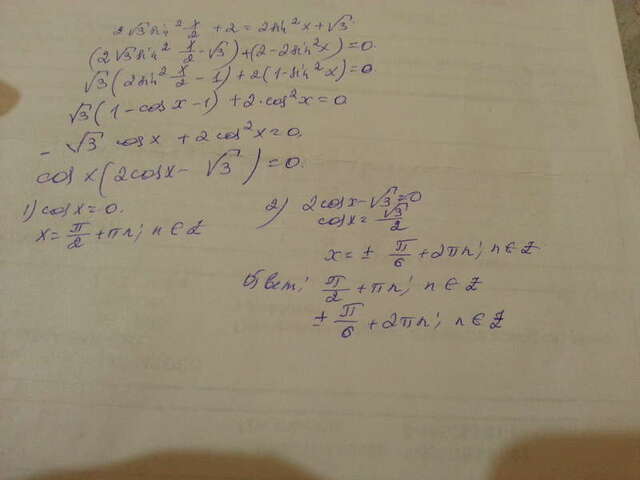 2√3 sin² x/2 + 2 = 2sin²x + √3
(2√3 sin² x/2 - √3) + (2 - 2sin²x) = 0.
√3 (2sin² x/2 - 1) + 2(1 - sin²x) = 0
√3 (1 - cosx - 1) + 2·cos²x = 0
- √3 cosx + 2cos²x = 0.
cos x (2cosx - √3) = 0.
1) cosx = 0.
x = π/2 + πn; n ∈ Z
2) 2cosx - √3 = 0
cosx = √3/2
x = ± π/6 + 2πn; n ∈ Z
Ответ: π/2 + πn; n ∈ Z
± π/6 + 2πn; n ∈ Z